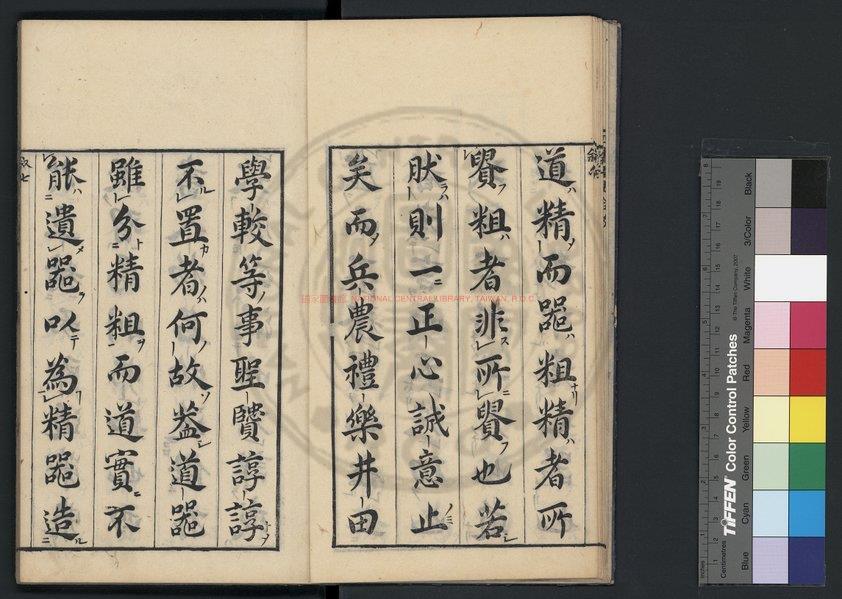 道精而器粗精者所
貴粗者非所貴也若
肰則一正心誠意止
矣而兵農禮樂井田
學較等事聖賢諄諄
不置者何故葢道器
雖分精粗而道實不
能遺器以為精器造
NATIONAL CENTRAL LIBRARY, TAIWAN, R.O.C.
TIFFEN Color Control Patches
© The Tiffen Company, 2007
Centimetres
Inches
Blue
Cyan
Green
Yellow
Red
Magenta
White
3/Color
Black